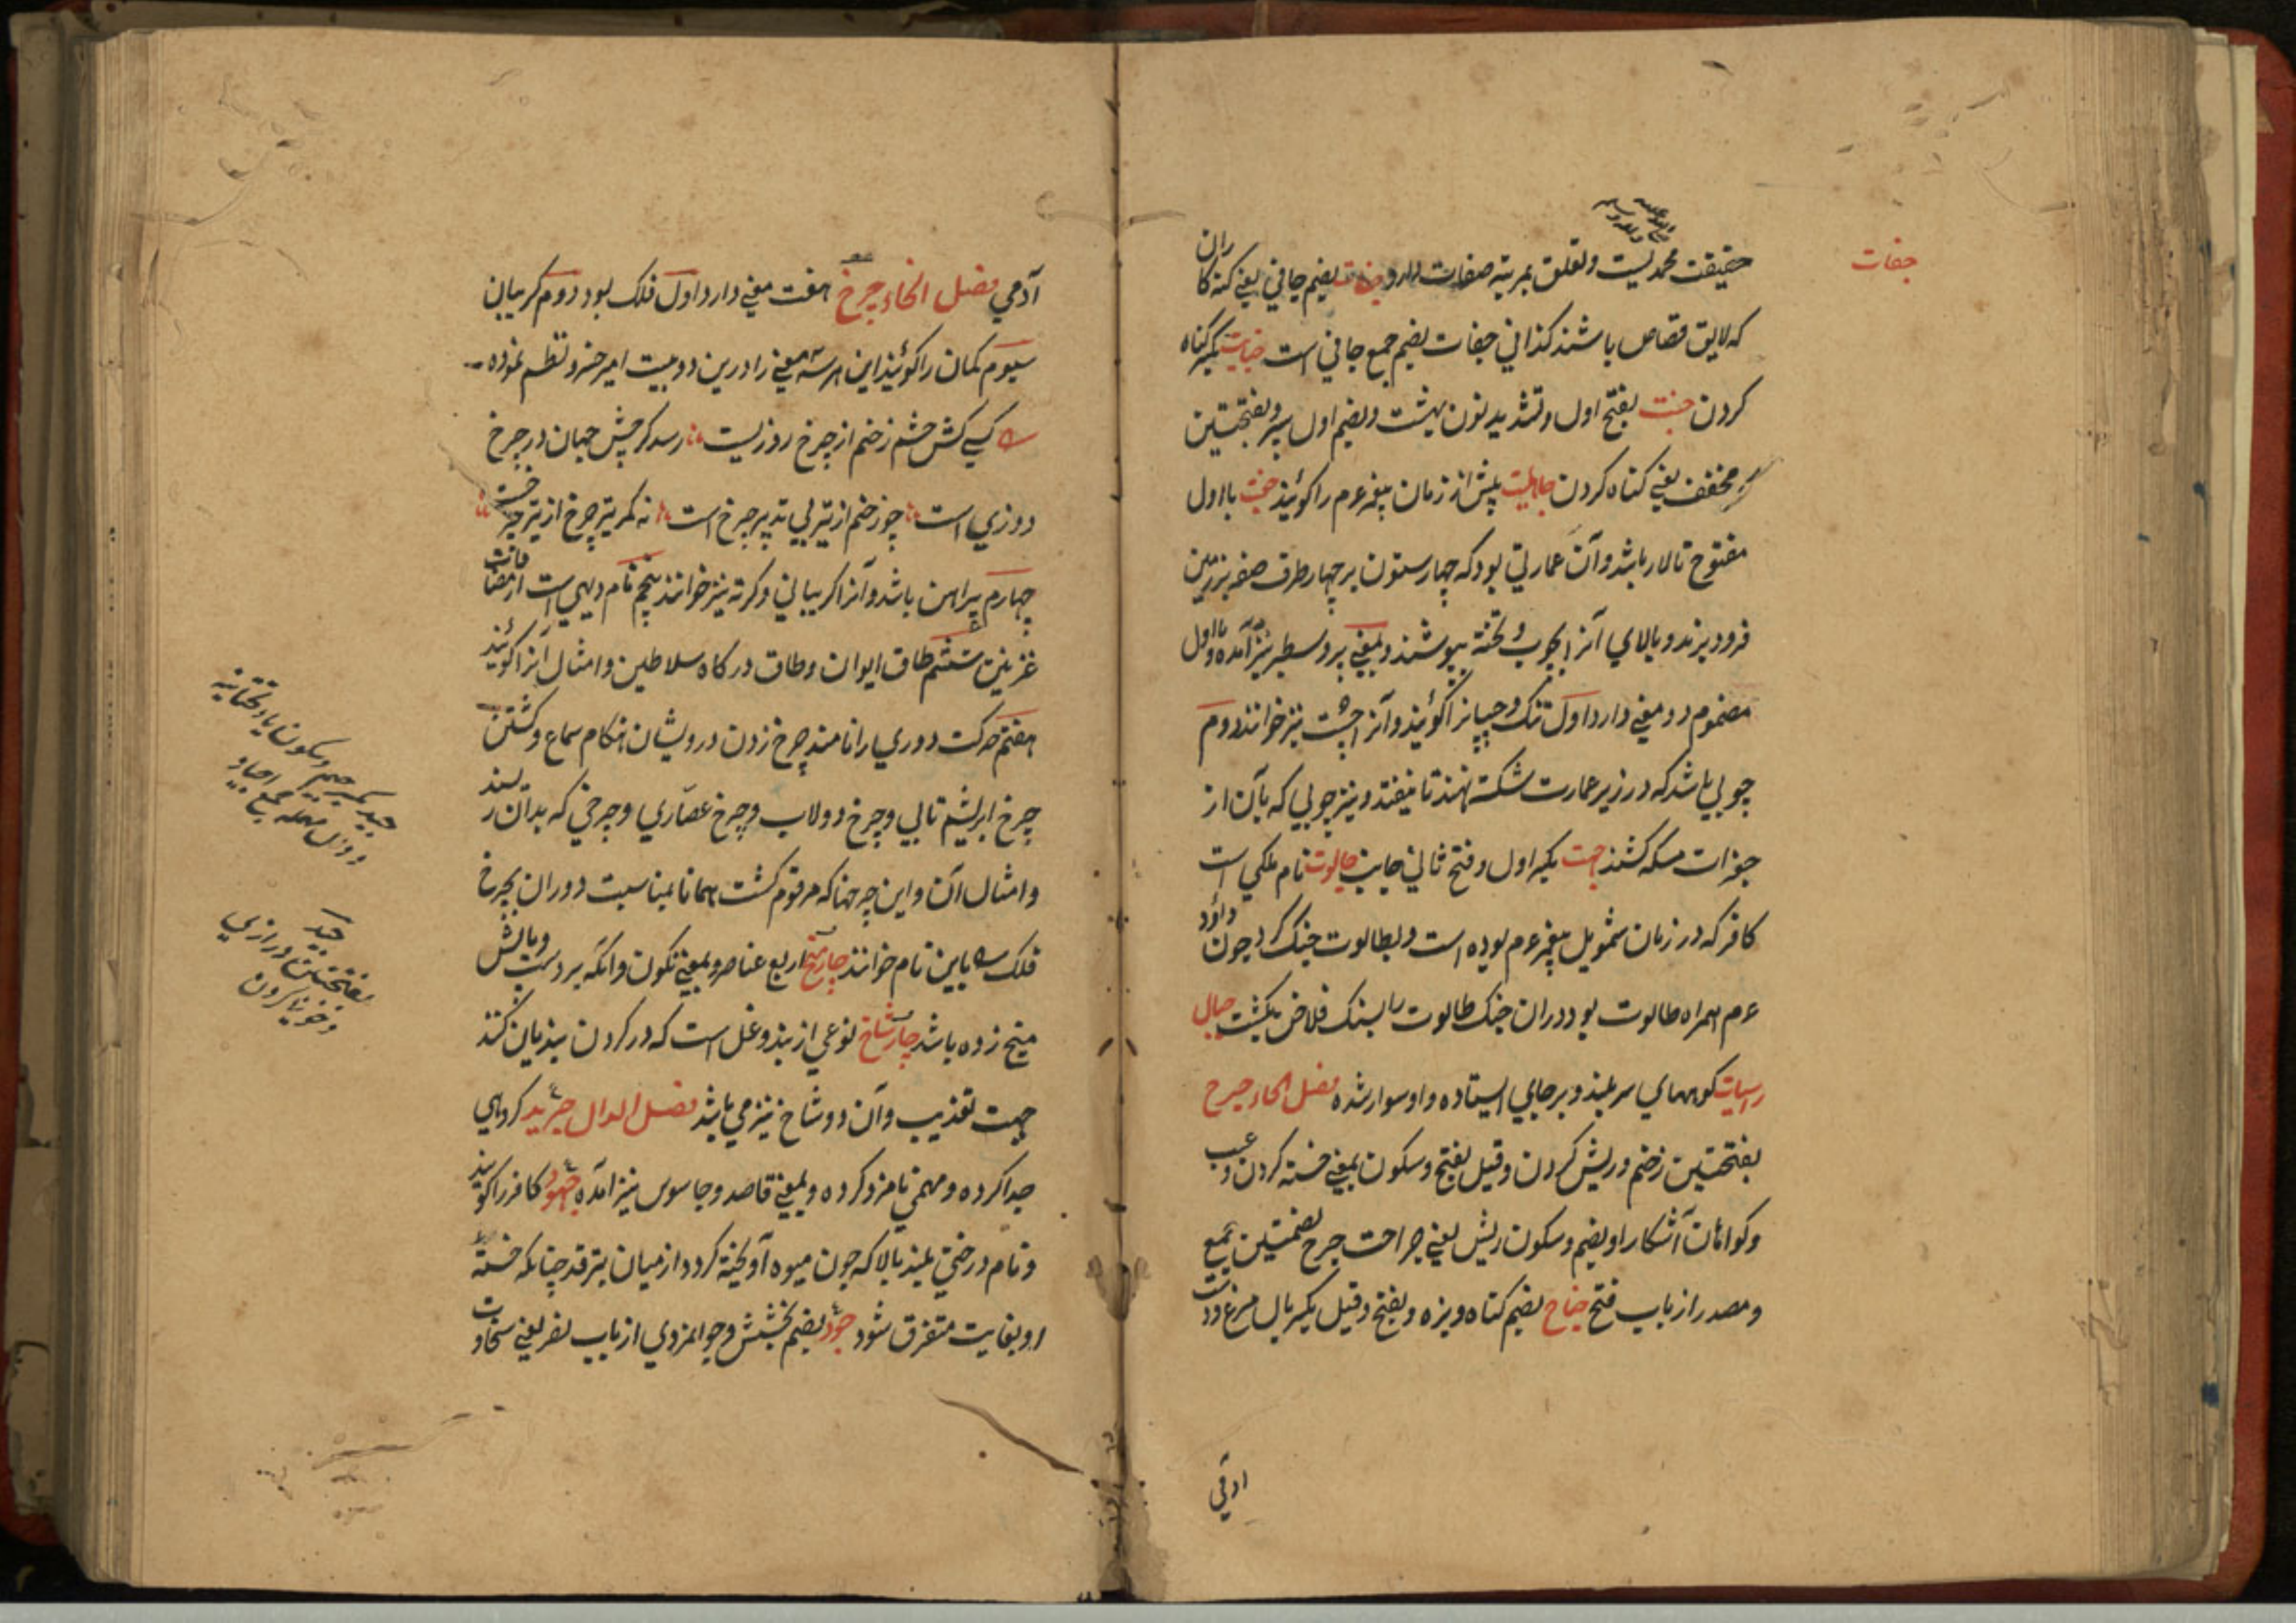 جفات
حقیقت محمدیست و تعلق بمرتبه صفات دارد جفات بضم جافی یعنی کنه کاران
که لایق قصاص باشند کذا فی جفات بضم جمع جافی است جنایت بکسر کناه
کردن جنت بفتح اول و تشدید نون بهشت و بضم اول سپر و بفتحتین
مخفف یعنی کناه کردن جاهلیت پیش از زمان پیغمبر عم را کویند با اول
مفتوح تالار باشد و آن عمارتی بود که چهار ستون بر چهار طرف صفه بر زمین
فرو برند و بالای آنرا بچوب و تخته بپوشند و بمعنی سطبر نیز آمده و با اول
مضموم دو معنی دارد اول تنک و چسپانرا کویند و آنرا چست نیز خوانند دوم
چوبی باشد که در زیر عمارت شکسته نهند تا نیفتد و نیز چوبی که بآن از
جغرات مسکه کشند جهت بکسر اول و فتح ثانی جانب جالوت نام ملکی است
کافر که در زمان شمویل پیغمبر عم بوده است و بطالوت جنک کرد چون داؤد
عم همراه طالوت بود در ان جنک طالوت را بسنک فلاخن بکشت جبال
راسیات کوههای سر بلند و بر جای ایستاده و اوسوار شده فصل الحاء جرح
بفتحتین زخم و ریش کردن و قیل بفتح و سکون بمعنی خسته کردن و عیب
و کواهان آشکارا و بضم و سکون ریش یعنی جراحت جرح بضمتین جمع
و مصدر از باب فتح جناح بضم کناه و بزه و بفتح و قیل بکسر بال مرغ و دست
آدمی
آدمی فصل الخاء چرخ هفت معنی دارد اول فلک بود دوم کریبان
سیوم کمان را کویند این هر سه معنی را درین دو بیت امیر خسرو نظم نموده
کسی کش چشم زخم از چرخ روزیست رسد کر چش جهان در چرخ
دوزی است چو زخم از تیر بی تدبیر چرخ است نه کمتر تیر چرخ از تیر چرخست
چهارم پیراهن باشد و آنرا کریبانی و کرته نیز خوانند پنجم نام دیهی است از مضافات
غزنین ششم طاق ایوان و طاق درکاه سلاطین و امثال آنرا کویند
هفتم حرکت دوری را نامند چرخ زدن درویشان هنکام سماع و کشتن
چرخ ابریشم تابی و چرخ دولاب و چرخ عصاری و چرخی که بدان ریسند
و امثال آن و این چرخها که مرقوم کشت همانا بمناسبت دوران بچرخ
فلک باین نام خوانند چارمیخ اربع عناصر و بمعنی نکون و آنکه بر دست و پایش
میخ زده باشد چارشاخ نوعی از بند و غل است که در کردن بندیان کنند
جهت تعذیب و آن دو شاخ نیز می باشد فصل الدال جرید کروهی
جدا کرده و مهمی نامزد کرده و بمعنی قاصد و جاسوس نیز آمده جهود کافر را کویند
و نام درختی بلند بالا که چون میوه آویخته کردد از میان بترقد چنانکه خسته
او بغایت متفرق شود جود بضم بخشش و جوانمردی از باب نصر یعنی سخاوت
جید بکسر جیم و سکون یاء تحتانیه
و دال مهمله جمع اجیاد
جید
بفتحتین درازی